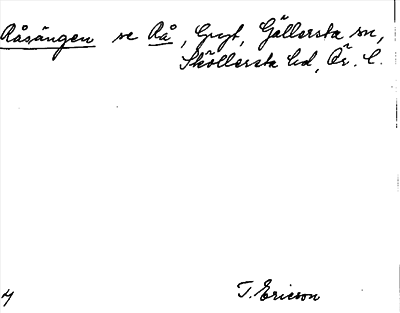 Aåsängen se Aå, Gryt, Gällersta sn,
Sköllersta hd, Ör. l.
4
T. Ericson